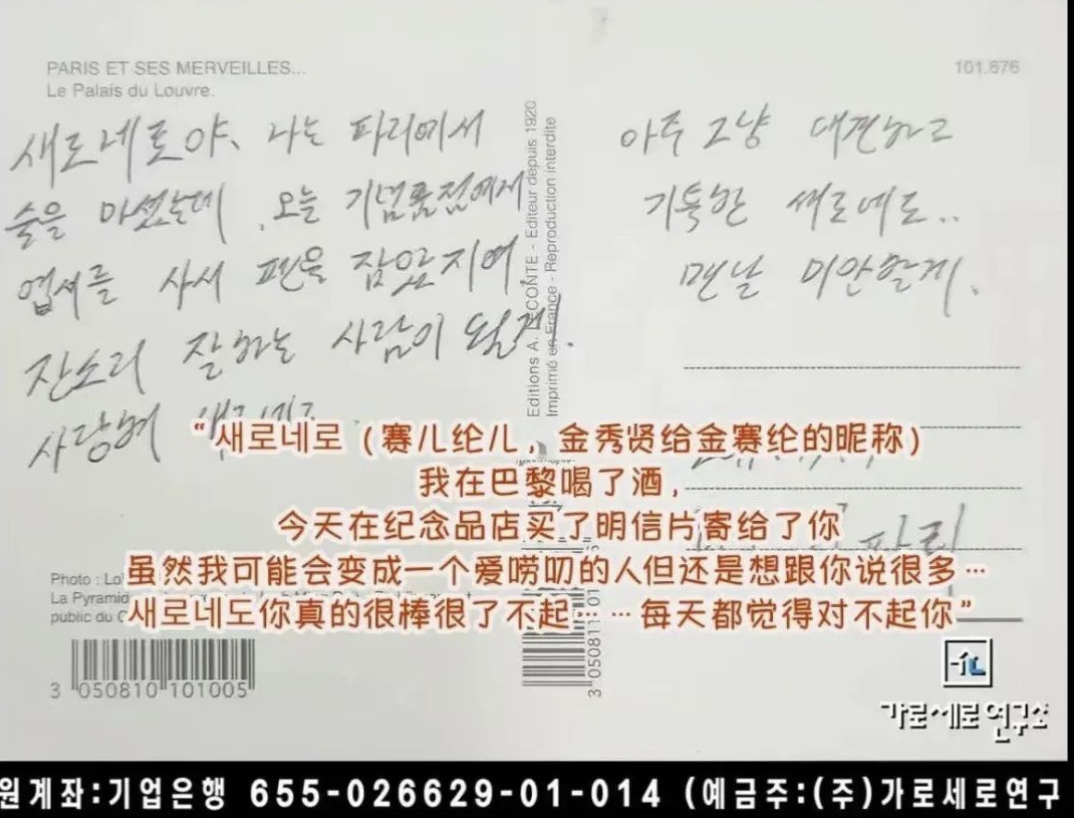 PARIS ET SES MERVEILLES...
Le Palais du Louvre.
101.676
새로네로야. 나는 파리에서
술을 마셨는데. 오늘 기념품점에서
엽서를 사서 펜을 잡았지여.
잔소리 잘하는 사람이 될게.
사랑해
아주 그냥 대견하고
기특한 새로네로..
맨날 미안할게.
파리
Editions A. LECONTE - Editeur depuis 1920
Imprimé en France - Reproduction interdite
“새로네로（赛儿纶儿，金秀贤给金赛纶的昵称）
我在巴黎喝了酒，
今天在纪念品店买了明信片寄给了你
虽然我可能会变成一个爱唠叨的人但还是想跟你说很多…
새로네도你真的很棒很了不起……每天都觉得对不起你”
Photo : Lo
La Pyramid
public du
3 050810 101005
3 050811 01
가로세로연구소
원계좌:기업은행 655-026629-01-014 (예금주:(주)가로세로연구